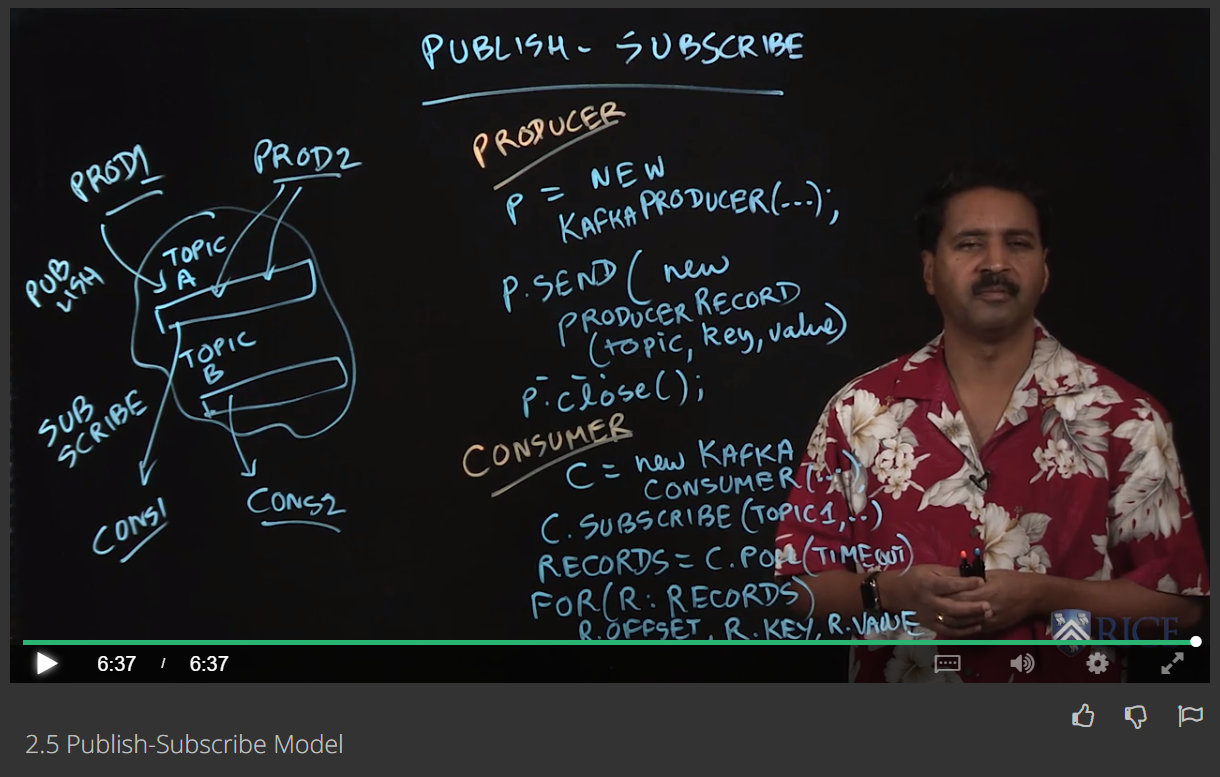 PUBLISH- SUBSCRIBE
PROD1
PROD2
PUB
LISH
TOPIC
A
TOPIC
B
SUB
SCRIBE
CONS1
CONS2
PRODUCER
P = NEW
KAFKAPRODUCER(...);
P.SEND( new
PRODUCER RECORD
(topic, key, value)
P.close();
CONSUMER
C = new KAFKA
CONSUMER(...);
C.SUBSCRIBE (TOPIC1,..)
RECORDS = C.POLL(TIMEOUT)
FOR(R: RECORDS)
R.OFFSET, R.KEY, R.VALUE
RICE
6:37 / 6:37
2.5 Publish-Subscribe Model